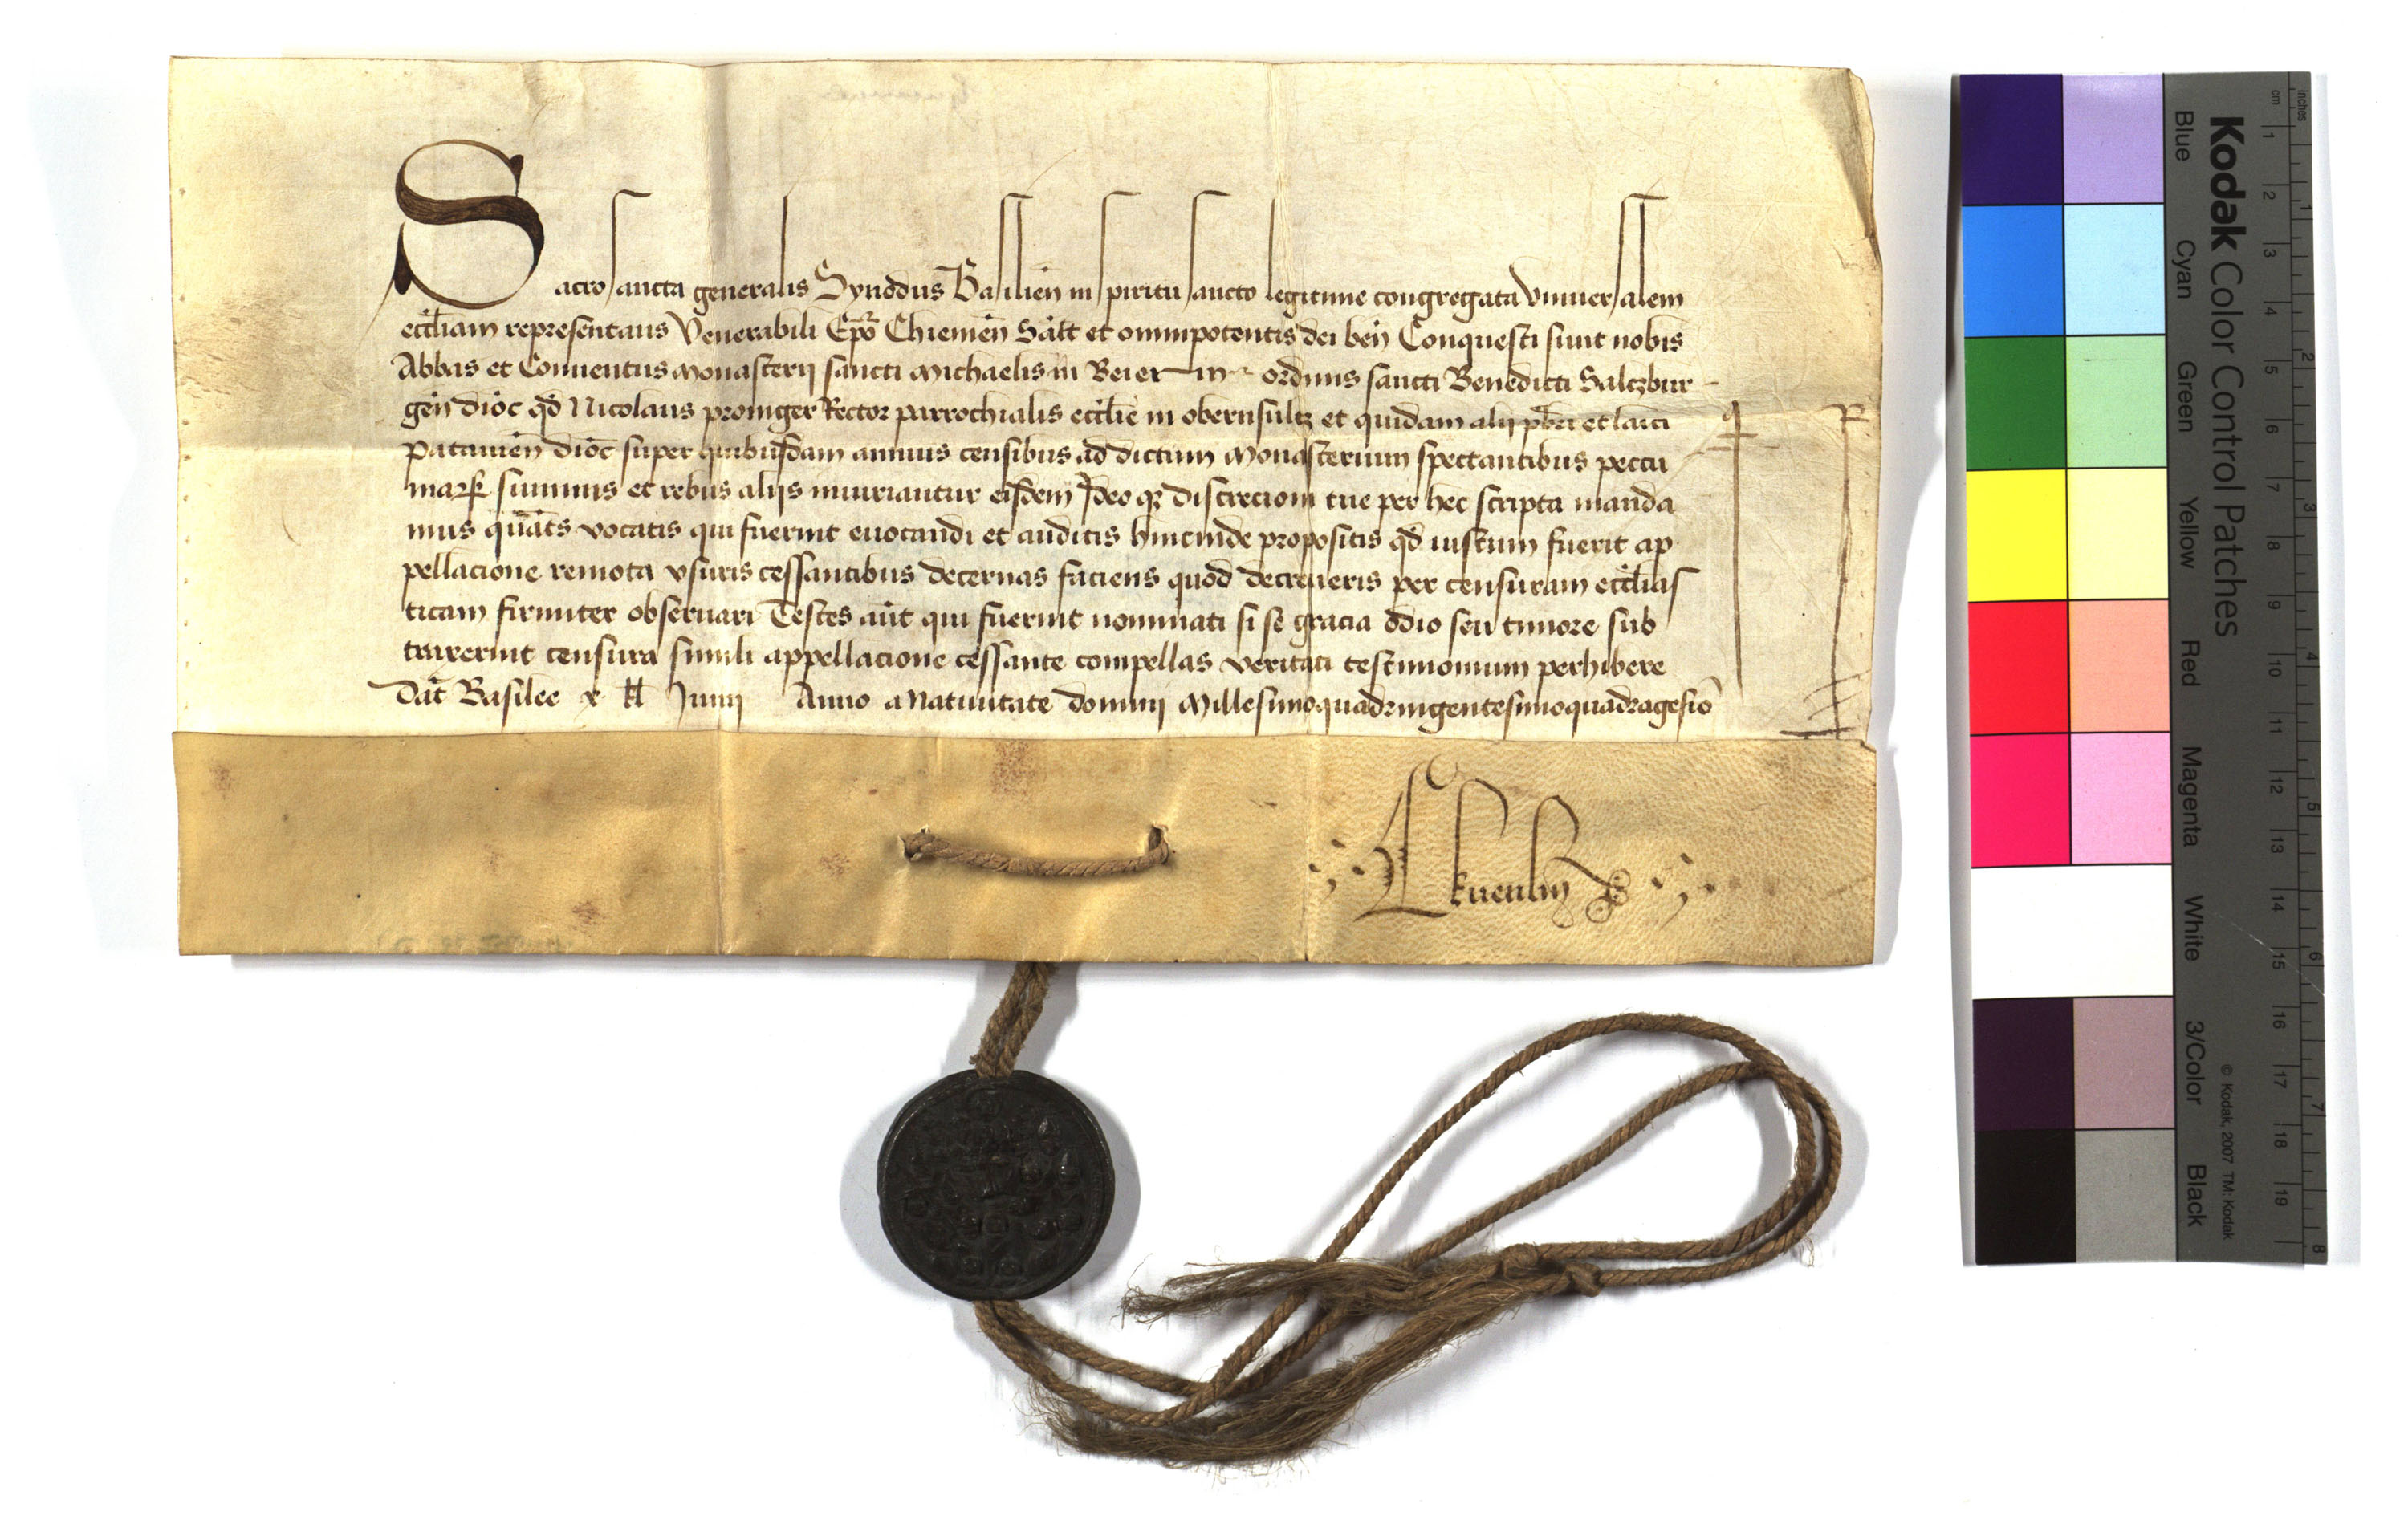 Sacrosancta generalis Synodus Basilien in spiritu sancto legitime congregata vniuersalem
eccliam representans Venerabili Epo Chiemen Salt et omnipotentis dei ben Conquesti sunt nobis
Abbas et Conuentus Monasterij sancti Michaelis in Beier in ordinis sancti Benedicti Saltzbur
gen dioc qd Nicolaus proniger Rector parrochialis ecclie in obernsultz et quidam alij pbri et laici
Patauien dioc super quibusdam annuis censibus ad dictum Monasterium spectantibus peccu
niarꝝ summis et rebus alijs iniuriantur eisdem Ideoqꝫ discrecioni tue per hec scripta manda
mus quats vocatis qui fuerint euocandi et auditis hincinde propositis qd iustum fuerit ap
pellacione remota vsuris cessantibus decernas faciens quod decreueris per censuram ecclias
ticam firmiter obseruari Testes aut qui fuerint nominati si se gracia odio seu timore sub
traxerint censura simili appellacione cessante compellas veritati testimonium perhibere
Dat Basilee x kl Junij Anno a Natiuitate domini Millesimoquadringentesimoquadragesio
Kodak Color Control Patches
Blue Cyan Green Yellow Red Magenta White 3/Color Black
© Kodak, 2007 TM: Kodak
inches 1 2 3 4 5 6 7 8
cm 1 2 3 4 5 6 7 8 9 10 11 12 13 14 15 16 17 18 19